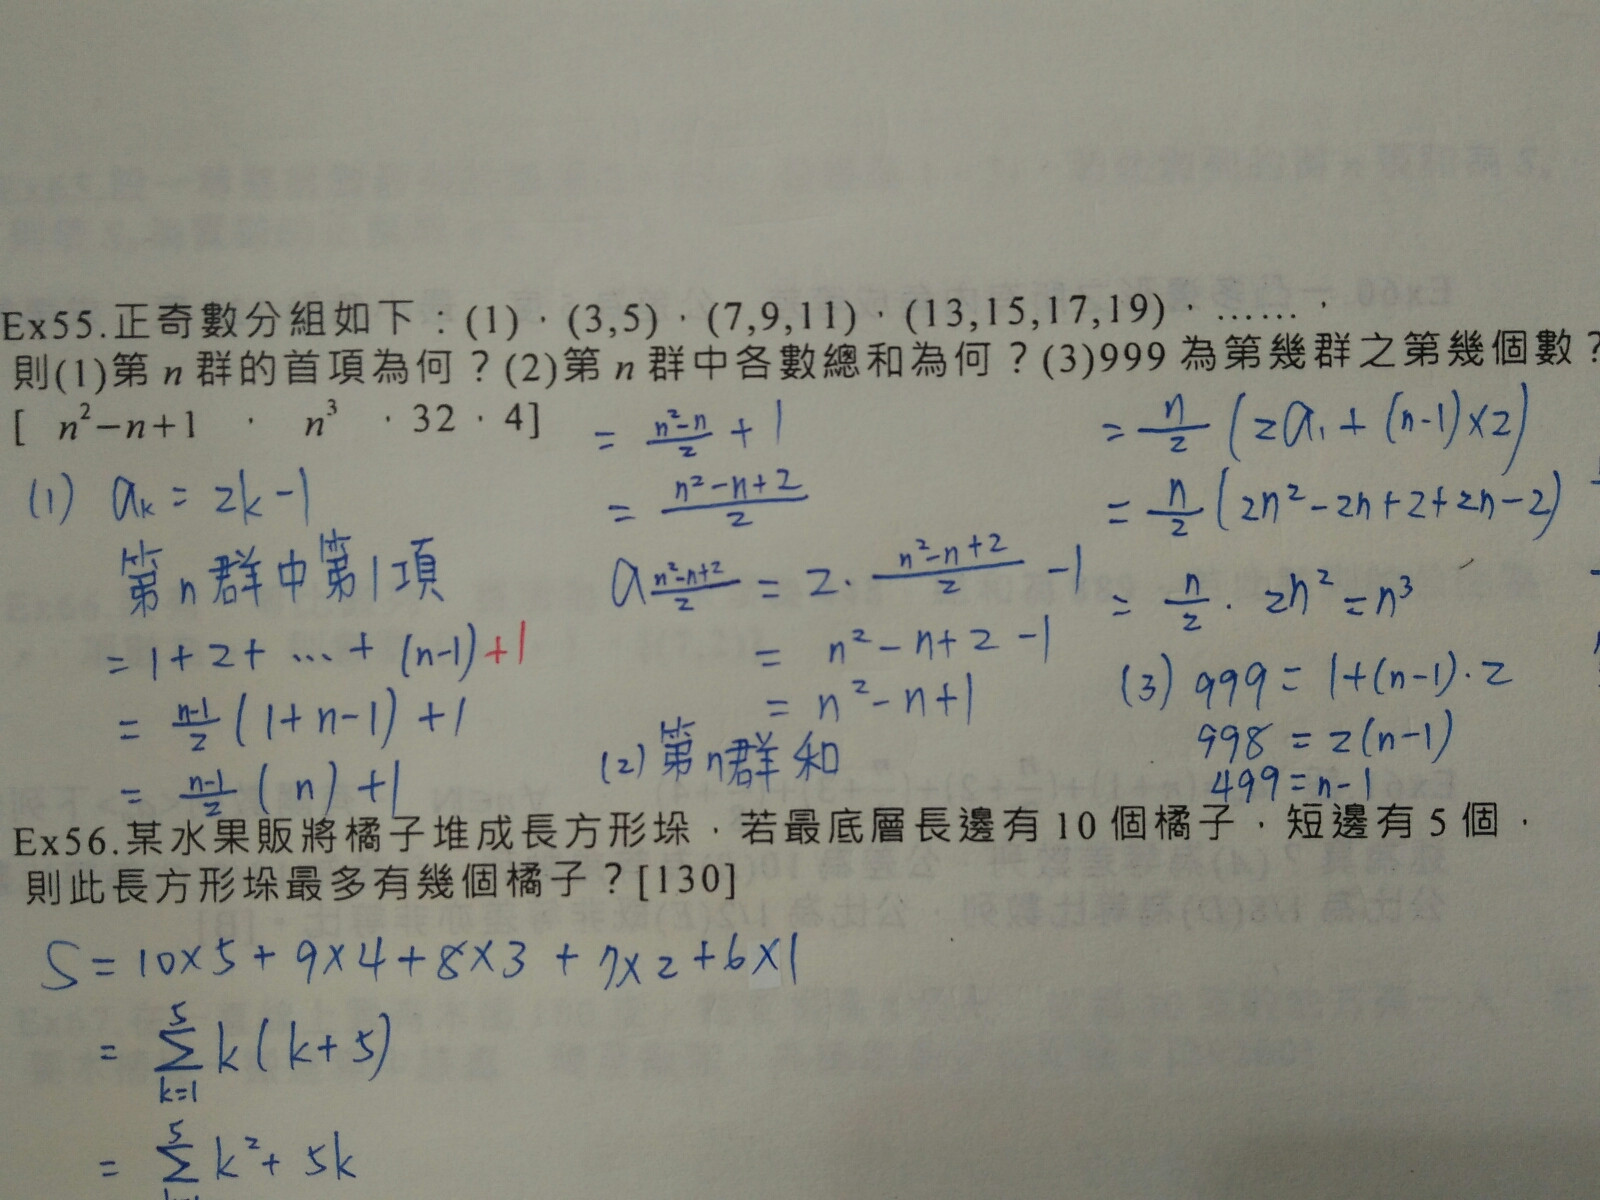 Ex55.正奇數分組如下：(1)，(3,5)，(7,9,11)，(13,15,17,19)，……，
則(1)第 n 群的首項為何？(2)第 n 群中各數總和為何？(3)999 為第幾群之第幾個數？
[ n²−n+1 ， n³ ，32，4]
(1) aₖ = 2k-1
第n群中第1項
= 1+2+ … + (n-1)+1
= (n-1)/2 (1+n-1) +1
= (n-1)/2 (n) +1
= (n²-n)/2 + 1
= (n²-n+2)/2
a_((n²-n+2)/2) = 2 · (n²-n+2)/2 -1
= n²-n+2-1
= n²-n+1
(2) 第n群和
= n/2 (2a₁+(n-1)×2)
= n/2 (2n²-2n+2+2n-2)
= n/2 · 2n² = n³
(3) 999 = 1+(n-1)·2
998 = 2(n-1)
499 = n-1
Ex56.某水果販將橘子堆成長方形垛，若最底層長邊有 10 個橘子，短邊有 5 個，
則此長方形垛最多有幾個橘子？[130]
S = 10×5+9×4+8×3+7×2+6×1
= Σ_(k=1)^5 k(k+5)
= Σ^5 k²+5k